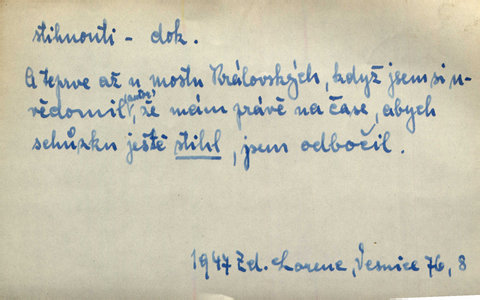 stihnouti - dok.
A teprve až u mostu Královských, když jsem si u-
vědomil (autor), že mám právě na čase, abych
schůzku ještě stihl, jsem odbočil.
1947 Zd. Lorenc, Vesnice 76, 8